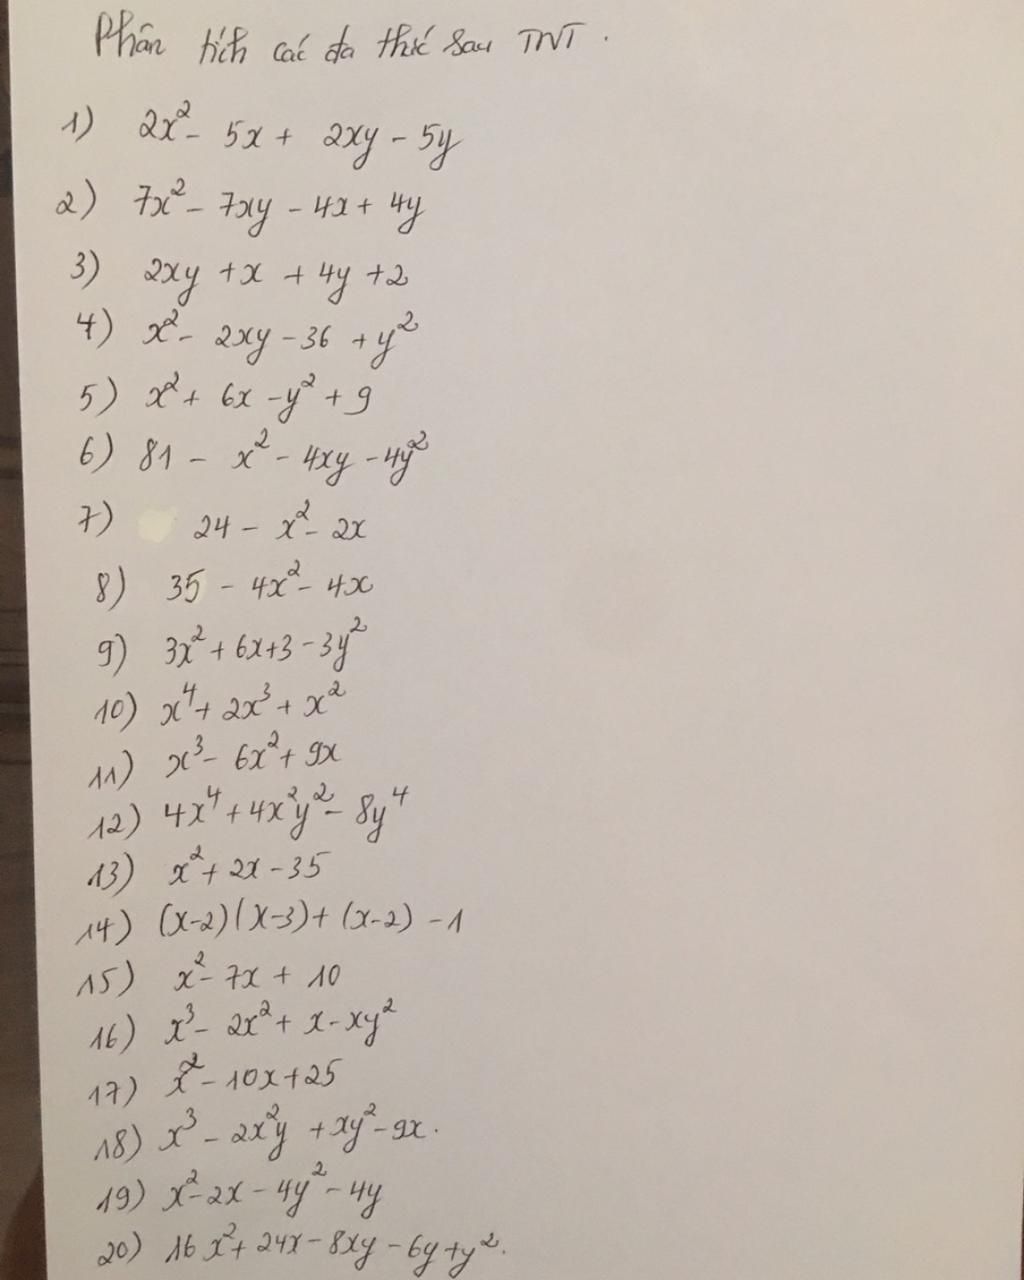 Phân tích các đa thức sau TNT.
1) 2x² - 5x + 2xy - 5y
2) 7x² - 7xy - 4x + 4y
3) 2xy + x + 4y + 2
4) x² - 2xy - 36 + y²
5) x² + 6x - y² + 9
6) 81 - x² - 4xy - 4y²
7) 24 - x² - 2x
8) 35 - 4x² - 4x
9) 3x² + 6x + 3 - 3y²
10) x⁴ + 2x³ + x²
11) x³ - 6x² + 9x
12) 4x⁴ + 4x²y² - 8y⁴
13) x² + 2x - 35
14) (x-2)(x-3) + (x-2) - 1
15) x² - 7x + 10
16) x³ - 2x² + x - xy²
17) x² - 10x + 25
18) x³ - 2x²y + xy² - 9x.
19) x² - 2x - 4y² - 4y
20) 16x² + 24x - 8xy - 6y + y².